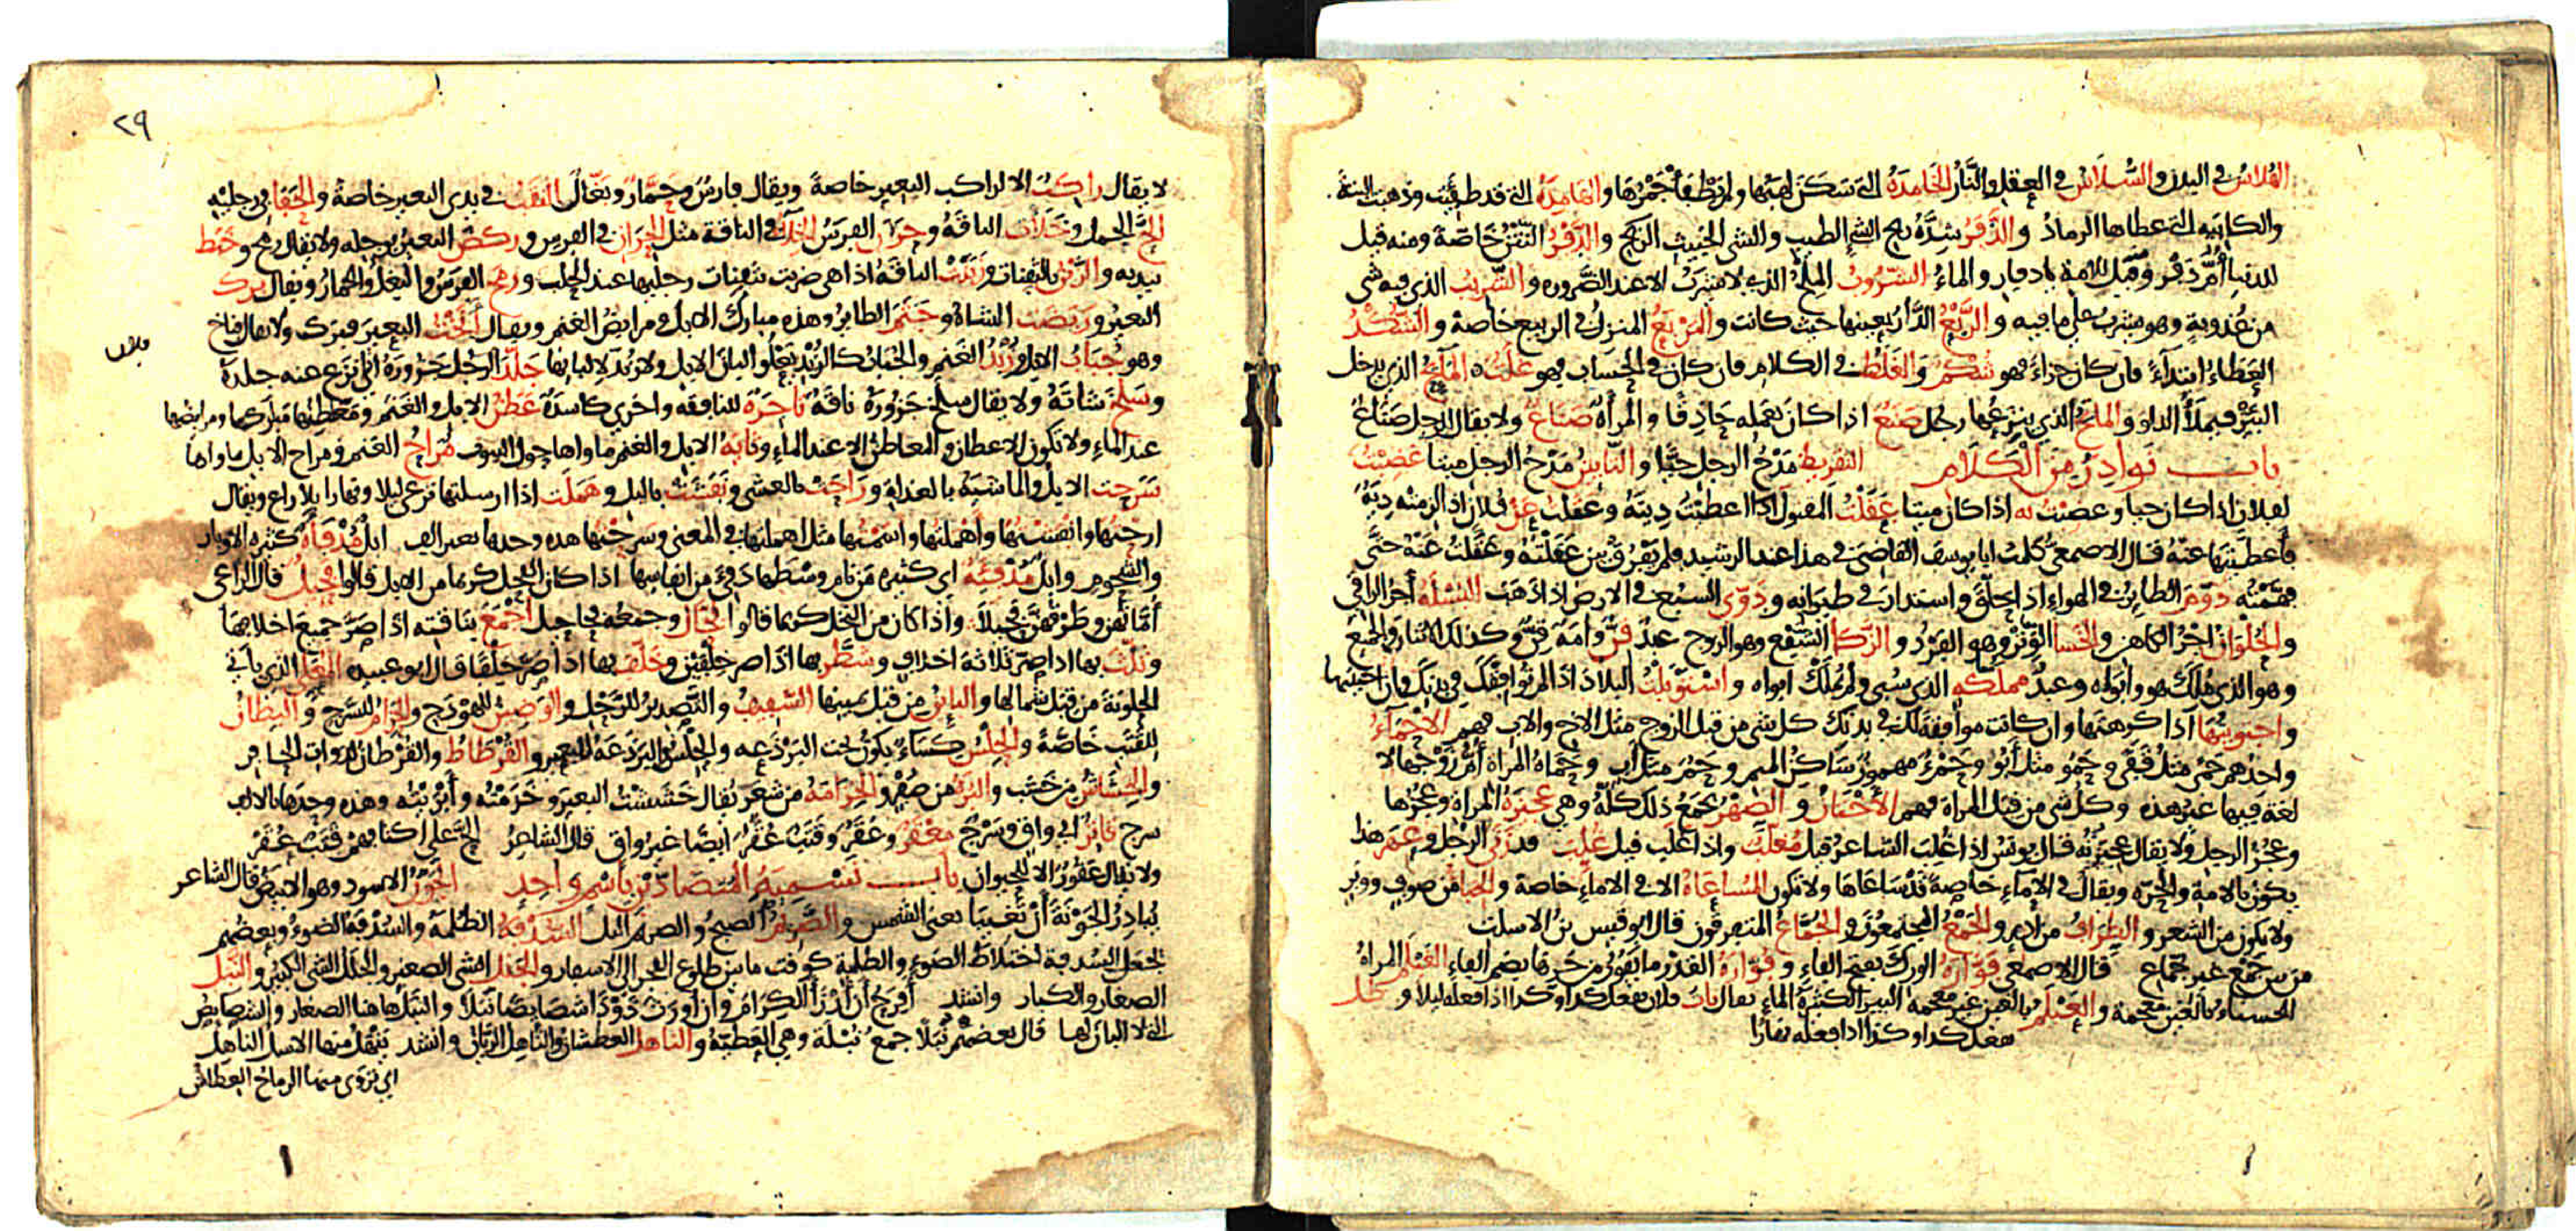 الهُلاسُ في البدن والسُّلَاسُ في العقل والنَّارُ الخَامِدَةُ التي سَكَنَ لهبُها ولم يُطفأ جَمْرُهَا والهَامِدَةُ التي قد طفئت وذهبت البتة
والكابيه التي غطاها الرماد والذَّفَرُ شدّةُ ريح الشي الطيب والشي الخبيث الريح والدَّفْرُ النَّتْنُ خاصّةً ومنه قيل
للدنيا أمّ دَفْرٍ وقيل للامة يا دفار والماءُ الشَّرُوبُ الملحُ الذي لا يشربُ الا عند الضرورة والشَّرِيبُ الذي فيه شي
من عُذوبة وهو يشربُ على ما فيه والرَّبْعُ الدَّارُ بعينها حيث كانت والمَرْبَعُ المنزلُ في الربيع خاصة والشُّكْدُ
العَطاءُ ابتداءً فان كان جزاءً فهو شُكْمٌ وَالغَلَطُ في الكلام فان كان في الحساب فهو غلتٌ المائحُ الذي يدخل
البئرَ فيملأُ الدلو والماتحُ الذي ينزعُها رجل صَنَعٌ اذا كان بعمله حاذقًا والمرأة صَنَاعٌ ولا يقال للرجل صَنَاعٌ
باب نَوادِرُ مِنَ الْكَلَامِ التقريظُ مَدْحُ الرجل حيًّا والتابينُ مَدْحُ الرجل ميتا غَضِبْتُ
لفلان اذا كان حيا وغضبت به اذا كان ميتا عَقَلْتُ المقتول اذا اعطيْتُ دِيتَهُ وعقلت عَنْ فلان اذا لزمته دِيَةٌ
فأعطيتها عنه قال الاصمعي كلمت ابا يوسف القاضي في هذا عند الرشيد فلم يفرق بين عَقَلْتُهُ وعَقَلْتُ عَنْهُ حتى
فهّمته دَوَّمَ الطائرُ في الهواء اذا حلّق واستدار في طيرانه ودَوَّى السبع في الارض اذا ذهب البُسْلَةُ أجرُ الراقي
والحُلْوَانُ اجرُ الكاهن والخَسا الوَترُ وهو الفَرْد والزَّكا الشَّفْع وهو الزوج عبدٌ قِنٌّ وأمَة قِنٌّ وكذلك الاثنان والجميع
وهو الذي مُلِكَ هو وأبواه وعبدُ مملكةٍ الذي سُبي ولم يُملك ابواه واسْتَوْبَلْتُ البلاد اذا لم توافقك في بدنك وان احببتها
واجتويتُها اذا كرهتها وان كانت موافقة لك في بدنك كل شي من قبل الزوج مثل الاخ والاب فهم الأحْمَاءُ
واحدُهم حَمًى مثلُ قَفًى وحَمُو مثل أبُو وحَمْءٌ مهموز ساكن الميم وحَمٌ مثل أب وحَمَاةُ المراة أمُّ زوجها لا
لغة فيها غير هذه وكل شي من قبل المراة فهم الأَخْتانُ والصِّهْرُ يجمَعُ ذلك كلّه وهي عجيزةُ المراة وعجزها
وعَجُزُ الرجل ولا يقال عجيزته قال يونس اذا غُلِبَ الشاعر قيل مُغلّب واذا غلب قيل غُلِّب قد زنى الرجل وعَهَرَ هذا
يكون بالامة والحرّه ويقال في الاماء خاصة قد سَاعَاها ولا تكون المُسَاعاةُ الا في الاماءِ خاصة والخِباءُ من صوف ووبر
ولا يكون من الشعر والطِرَافُ من ادم والجَمْعُ المجتمعُون والجُمَّاعُ المتفرقون قال ابو قيس بن الاسلت
من بين جَمْعٍ غير جُمّاع قال الاصمعي فَوّارةُ الورك بفتح الفاء وفُوّارة القدر ما يفور من حرها بضم الفاء الغَيْلَمُ المراة
الحسناء بالغين معجمة والعَيْلَمُ بالعين غير معجمة البيرُ الكثيرةُ الماء يقال بات فلان يفعل كذا وكذا اذا فعله ليلا وظل
يفعل كذا وكذا اذا فعله نهارًا
٢٩
لا يقال راكبٌ الا لراكب البعير خاصةً ويقال فارسٌ وحَمَّارٌ وبَغّالٌ النَّقَبُ في يدي البعير خاصة والحَفَا في رجليْه
ألحَّ الجمل وخَلأتِ الناقةُ وحرنَ الفرسُ الخِلاءُ في الناقة مثلُ الحِرَانِ في الفرس وركضَ البعيرُ برجله ولا يقال رمح وخَبَط
بيديه والزَّبْنُ بالثفنات وزبَنَتِ الناقةُ اذا هي ضربت بثفنات رجليها عند الحلب ورمحَ الفرسُ والبغلُ والحمارُ ويقال برك
البعيرُ وربَضَتِ الشاةُ وجَثَمَ الطايرُ وهذه مباركُ الابل ومرابضُ الغنم ويقال أنَخْتُ البعيرَ فبركَ ولا يقال فناخ
وهو جُبَابُ الابل وزُبْدُ الغَنَم والجُبابُ كالزُبْد يَعْلو البانَ الابل ولا زُبدَ لالبانها جَلَّدَ الرجلُ جَزُورَهُ اي نزع عنه جلدهُ
وسَلَخَ شاتَهُ ولا يقال سلخ جزورَهُ ناقةٌ تاجرةٌ للنافقه واخرى كاسدةٌ عَطَنُ الابل والغَنَمِ ومَعَاطِنُها مَباركها ومرابضها
عند الماء ولا تكون الاعطان والمعاطنُ الا عند الماءِ وثايةُ الابل والغنم ماواها حول البيوت مُرَاحُ الغنم ومراح الابل ماواها
سَرَحَتِ الابل والماشيةُ بالغداة ورَاحَتْ بالعشي ونَفَشَتْ بالليل وهَمَلَت اذا ارسلتها ترعى ليلا ونهارا بلا راع ويقال
ارحتُها وانفَشْتُها وأهْمَلتُها واسَمْتُها مثل اهملتها في المعنى وسَرحْتُها هذه وحدها بغير الف ابلٌ مُدْفَأةٌ كثيره الاوبار
والشحوم وابلٌ مُدْفِئَةٌ اي كثيره من نام وسْطَها دَفِئَ من انفاسها اذا كان الفحل كريما من الابل قالوا فحيلٌ قال الراعي
أُمّاتُهن وطَرْقُهنَّ فحيلًا واذا كان من النخل كريما قالوا فُحّال وجمعه فحاحيل أجْمَعَ بناقته اذا صَرَّ جميعَ اخلافها
وثلَّثَ بها اذا صرّ ثلاثة اخلافٍ وشَطَّر بها اذا صرّ خِلْفَين وخَلَّفَ بها اذا صَرَّ خِلْفًا قال ابو عبيده المُعَلّي الذي ياتي
الحلوبة من قبل شمالها والبائنُ من قبل يمينها السَّفِيفُ والتَّصديرُ للرَّحْل والوَضِينُ للهَوْدَج والحِزَامُ للسّرج والبِطانُ
للقَتَبِ خاصّةً والحِلْسُ كِسَاءٌ يكونُ تحت البَرْذَعه والحِلْسُ والبرذعة للبعير والقُرْطَاطُ والقُرْطانُ لذوات الحافر
والخِشَاشُ من خشب والبُرَةُ من صُفْر والخِزَامَةُ من شَعَر يُقال خَشَشْتُ البعيرَ وخَزَمْتُه وأبْرَيْتُه وهذه وحدها بالالف
سرج قاترٌ اي واقٍ وسَرْجٌ مِعْقَرٌ وعُقَرٌ وقَتَبٌ عُقَرٌ ايضًا غيرُ واقٍ قال الشاعرُ ألحّ على اكتافهم قَتَبٌ عُقَرْ
ولا يقال عَقُورٌ الا للحيوان باب تَسْمِيَةِ المُتضَادَّيْنِ بِاسْمٍ وَاحِدٍ الجَوْنُ الاسود وهو الابيضُ قال الشاعر
يُبادِرُ الجَوْنَةَ أنْ تَغِيبَا يعنى الشمس والصَّريمُ الصبحُ والصريمُ الليل السُّدْفةُ الظُلمَةُ والسُّدْفةُ الضوءُ وبعضُهم
يجعل السُدفة اختلاطَ الضوءِ والظلمة كوقت ما بين طلوع الفجر الى الاسفار والجَلَلُ الشي الصغير والجلَلُ الشي الكبيرُ والنَّبَل
الصغار والكبار وانشد أفرَحُ أن أُرْزَأَ الكِرَامَ وأن أورَثَ ذَوْدًا شصايصًا نَبَلَا والنَّبَلُ هاهنا الصغار والشصايصُ
التي لا البان لها قال بعضهم نُبَلًا جمعُ نُبْلة وهي العَطيّةُ والناهلُ العطشانُ والناهلُ الرّيّانُ وانشد ينهلُ منها الاسل الناهلُ
اي يروى منها الرماحُ العطاشُ